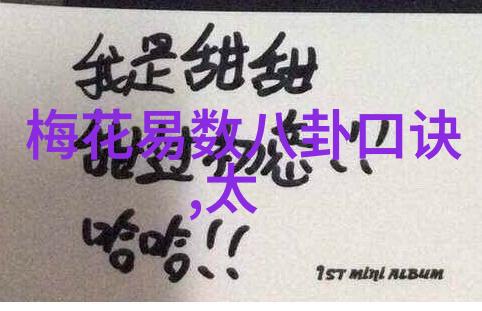 我是甜甜
梅花易数八卦口诀
甜过初恋!!
,太
哈哈!!
1ST MINI ALBUM